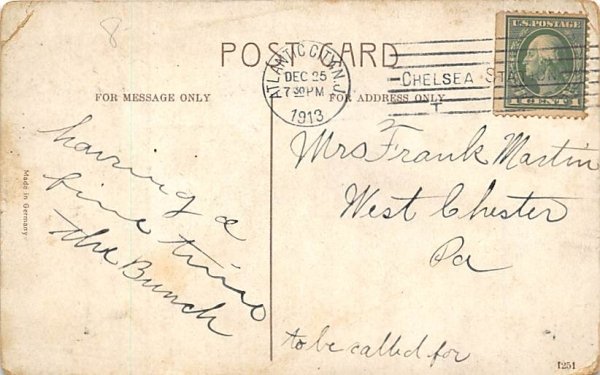 8
POST CARD
ATLANTIC CITY, N.J.
DEC 25
7 30 PM
1913
CHELSEA STATION
T
U.S. POSTAGE
1 CENT 1
FOR MESSAGE ONLY
FOR ADDRESS ONLY
Made in Germany
having a
fine time
the Bunch
Mrs Frank Martin
West Chester
Pa
to be called for
1251